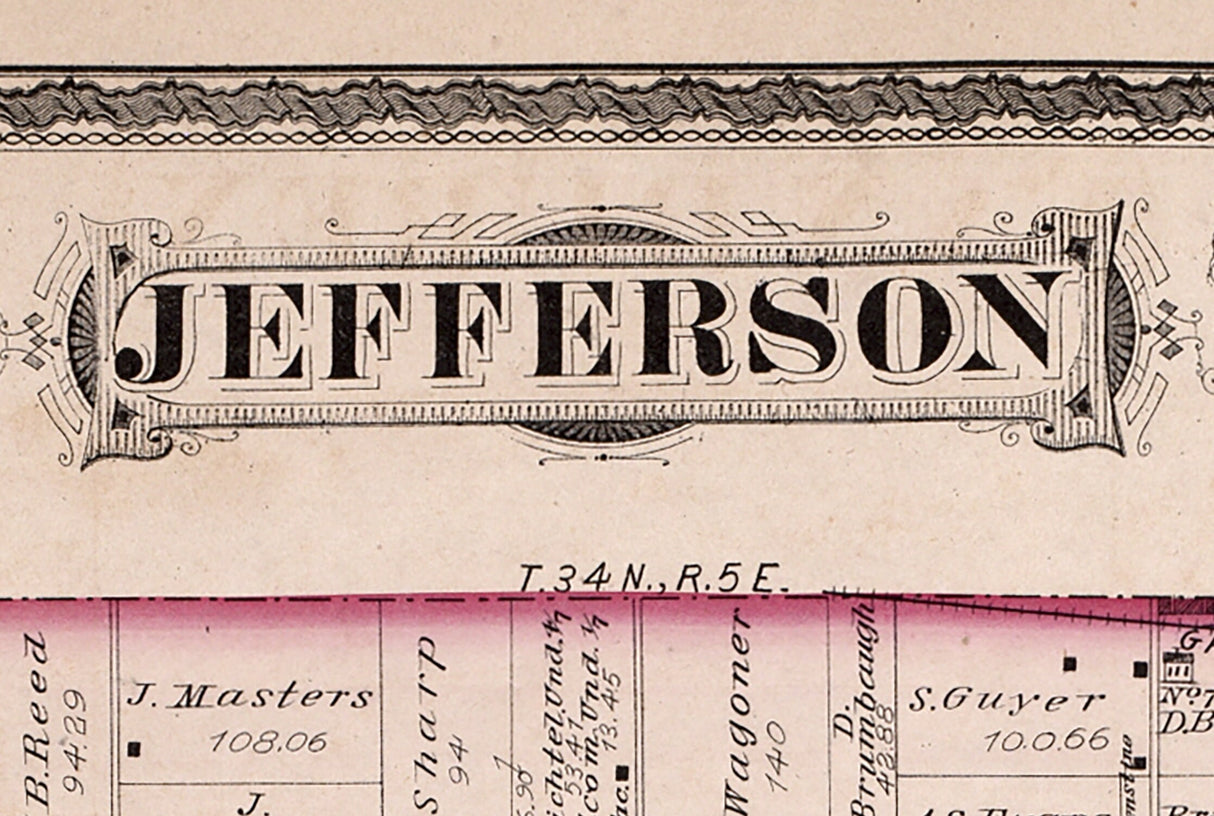 JEFFERSON
T. 34 N., R. 5 E.
B. Reed
94.29
J. Masters
108.06
J.
Sharp
94
Und. 4/7
53.47
Und. 3/7
13.45
Wagoner
140
D.
Brumbaugh
42.88
S. Guyer
10.0.66
No. 7
D.B